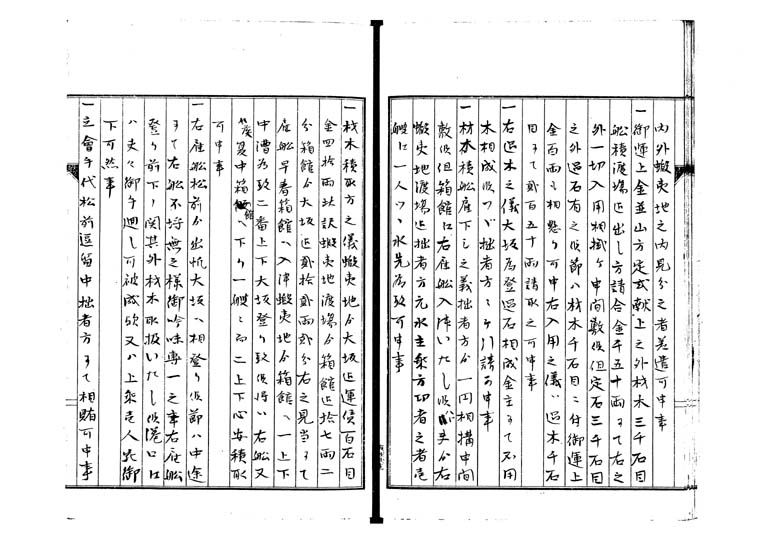 内外蝦夷地之内見分之者差遣可申事
一御運上金並山方定式献上之外材木三千石目
船積渡場迄出し方請合金千五十両ニて右之
外一切入用相掛ケ申間敷候但定石三千石目
之外過石有之候節ハ材木千石目ニ付御運上
金百両ニ相懸り可申右入用之儀ハ過木千石
目ニて弐百五十両請取之可申事
一右過木之儀大坂為登過石相成金主ニて不用
木相成候ハヽ拙者方ニケ引請可申事
一材木積船雇下シ之義拙者方ゟ一円相構申間
敷候但箱館ニ右雇船入津いたし候ハヽ夫ゟ右
蝦夷地渡場迄拙者方元水主案方功者之者壱
艘ニ一人ツヽ水先為致可申事
一材木積取方之儀蝦夷地ゟ大坂迄運賃百石目
金四拾両此訳蝦夷地渡場ゟ箱館迄拾七両二
分箱館ゟ大坂迄弐拾弐両弐分右之見当ニて
雇船早春箱館ヘ入津蝦夷地ゟ箱館ヘ一上下
中漕為致二番上下大坂登り致候得ハ右船又
候夏中箱館ヘ下り一艘ニ而二上下心安積取
可申事
一右雇船松前ゟ出帆大坂ヘ相登り候節ハ中途
ニて右船不埒無之様御吟味専一之事右雇船
登り前下ノ関其外材木取扱いたし候港口口
ハ夫々御手廻し可被成候又ハ上乗壱人宛御
下可然事
一立会手代松前逗留中拙者方ニて相賄可申事